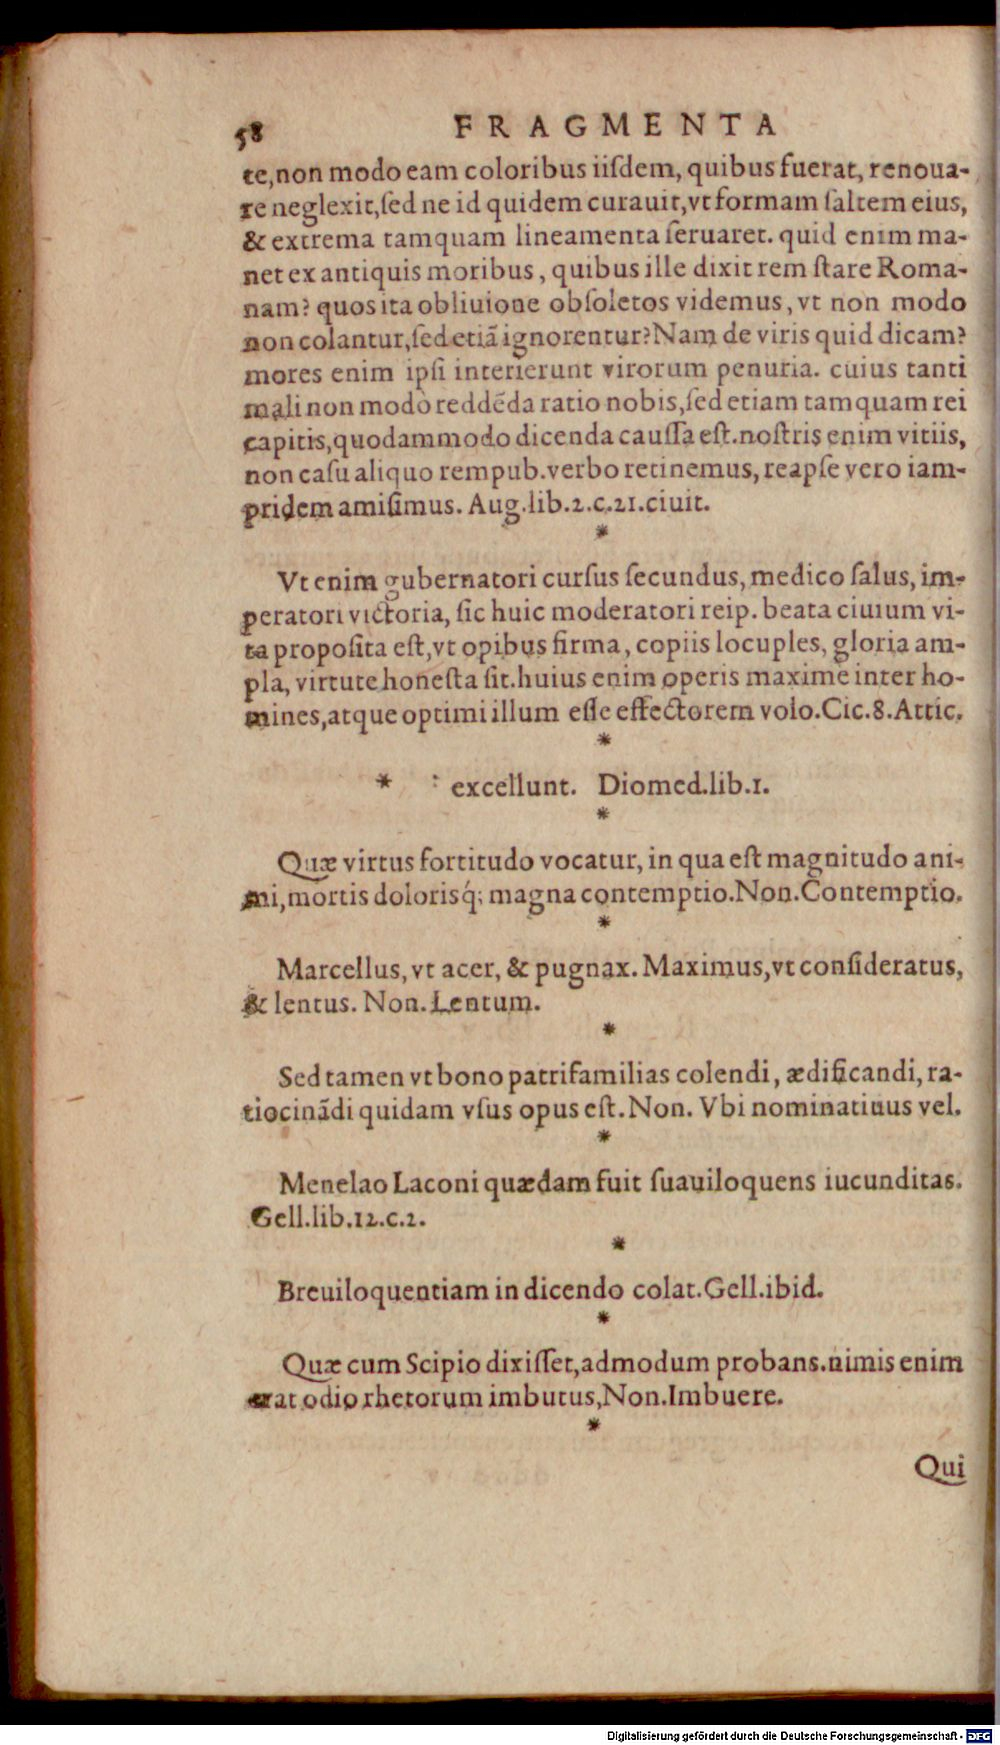 58 FRAGMENTA
te,non modo eam coloribus iiſdem, quibus fuerat, renoua-
re neglexit,ſed ne id quidem curauit,vt formam ſaltem eius,
& extrema tamquam lineamenta ſeruaret. quid enim ma-
net ex antiquis moribus, quibus ille dixit rem ſtare Roma-
nam? quos ita obliuione obſoletos videmus, vt non modo
non colantur,ſed etiã ignorentur? Nam de viris quid dicam?
mores enim ipſi interierunt virorum penuria. cuius tanti
mali non modò reddẽda ratio nobis,ſed etiam tamquam rei
capitis,quodammodo dicenda cauſſa eſt.noſtris enim vitiis,
non caſu aliquo rempub.verbo retinemus, reapſe vero iam-
pridem amiſimus. Aug.lib.2.c.21.ciuit.
*
Vt enim gubernatori curſus ſecundus, medico ſalus, im-
peratori victoria, ſic huic moderatori reip. beata ciuium vi-
ta propoſita eſt,vt opibus firma, copiis locuples, gloria am-
pla, virtute honeſta ſit.huius enim operis maximè inter ho-
mines,atque optimi illum eſſe effectorem volo.Cic.8.Attic.
*
* : excellunt. Diomed.lib.1.
*
Quæ virtus fortitudo vocatur, in qua eſt magnitudo ani-
mi,mortis dolorisq́; magna contemptio.Non.Contemptio.
*
Marcellus, vt acer, & pugnax. Maximus,vt conſideratus,
& lentus. Non. Lentum.
*
Sed tamen vt bono patrifamilias colendi, ædificandi, ra-
tiocinãdi quidam vſus opus eſt. Non. Vbi nominatiuus vel.
*
Menelao Laconi quædam fuit ſuauiloquens iucunditas.
Gell.lib.12.c.2.
*
Breuiloquentiam in dicendo colat.Gell.ibid.
*
Quæ cum Scipio dixiſſet,admodum probans.nimis enim
erat odio rhetorum imbutus,Non.Imbuere.
*
Qui
Digitalisierung gefördert durch die Deutsche Forschungsgemeinschaft - DFG